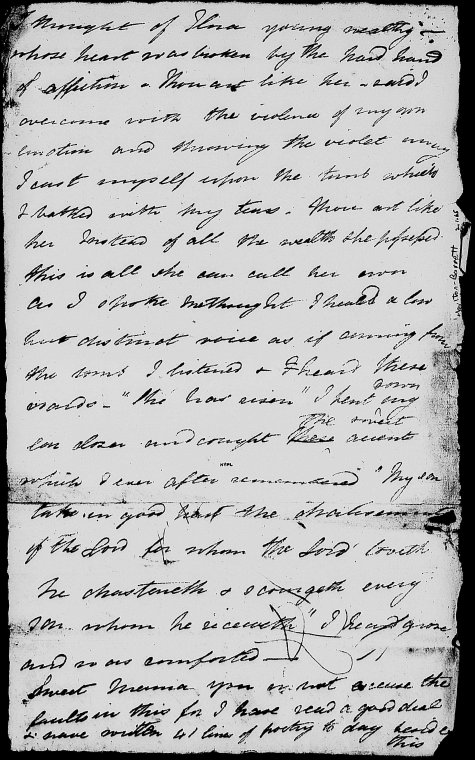 I thought of Flora young wealthy —
whose heart was broken by the hard hand
of affliction - Thou art like her - said I
overcome with the violence of my own
emotion and throwing the violet away
I cast myself upon the tomb which
I bathed with my tears. Thou art like
her Instead of all the wealth she possessed
this is all she can call her own
As I spoke methought I heard a low
but distinct voice as if coming from
the tomb I listened & I heard these
words - "He has risen" I bent my down
ear closer and caught these the sweet accents
which I ever after remembered "My son
take in good heart the chastisement
of the Lord for whom the Lord loveth
he chasteneth & scourgeth every
son whom he receiveth" I heard arose
and was comforted —
Sweet Mama you must excuse the
faults in this for I have read a good deal
& have written 41 lines of poetry to day beside
this